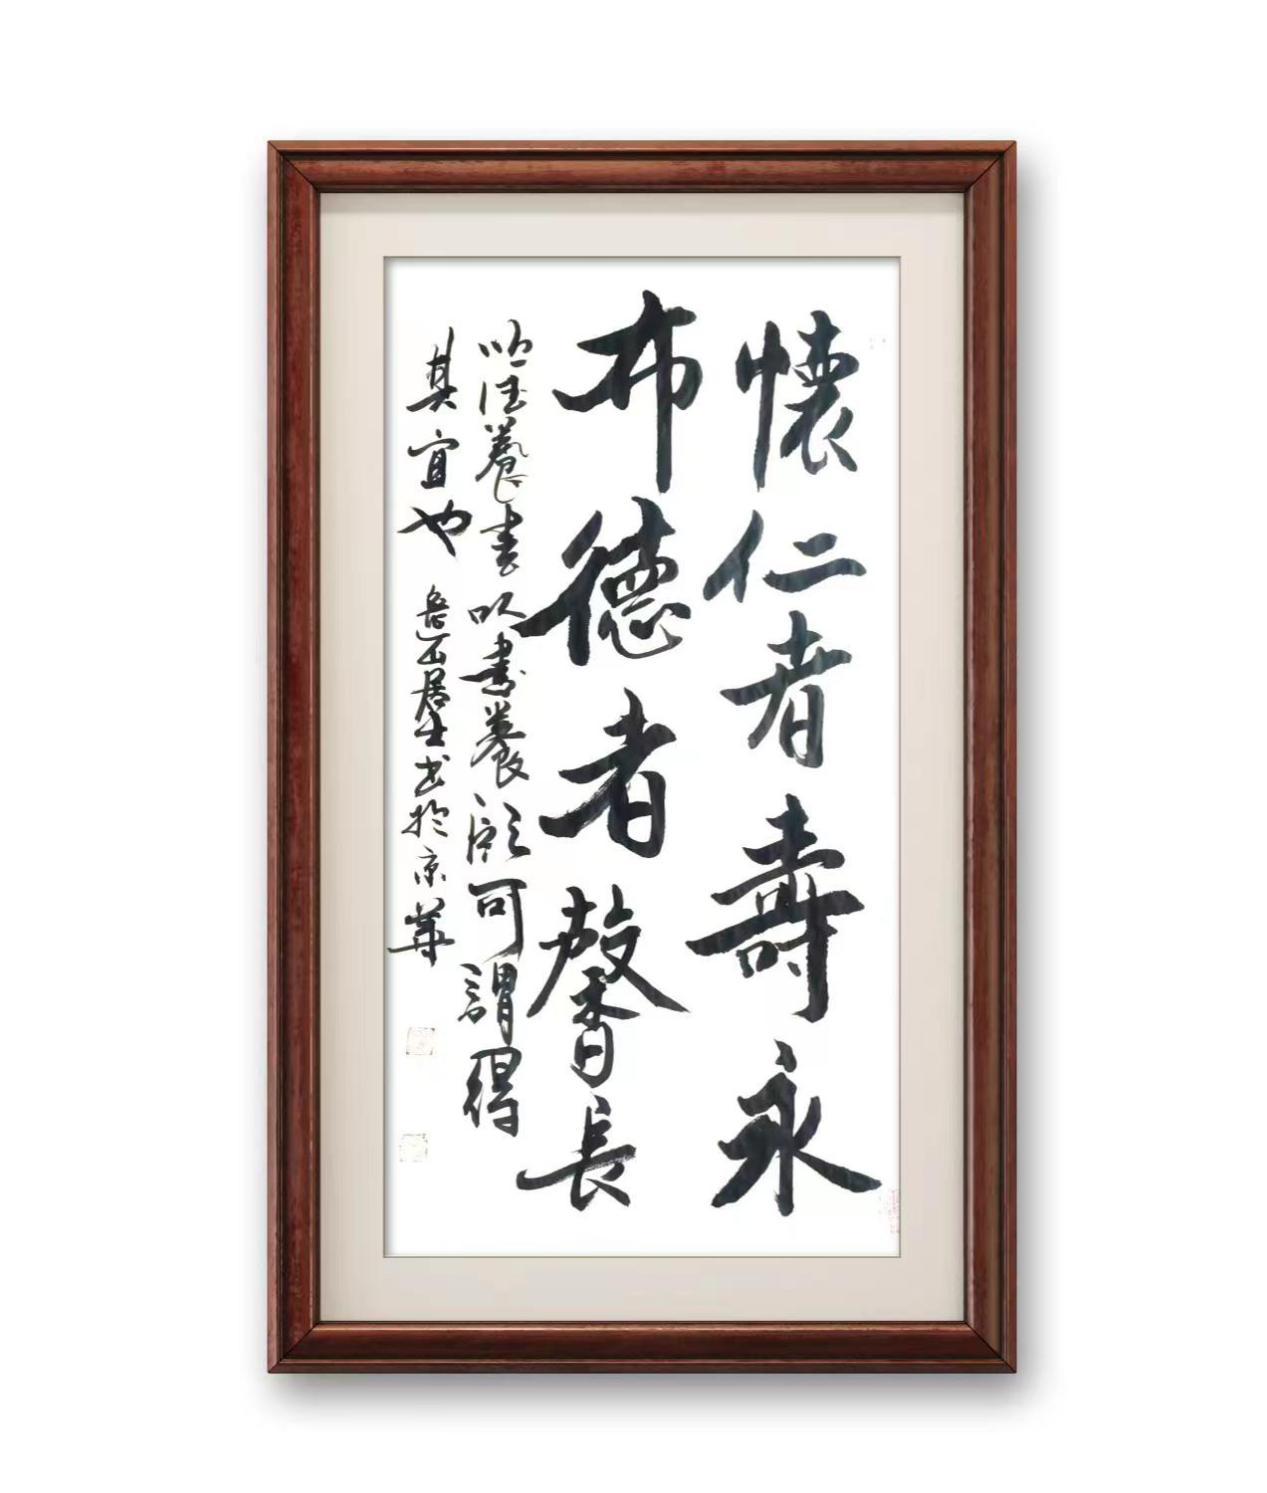 懷仁者壽永
布德者馨長
以德養書以書養顏可謂得
其宜也 岳西居士书於京華